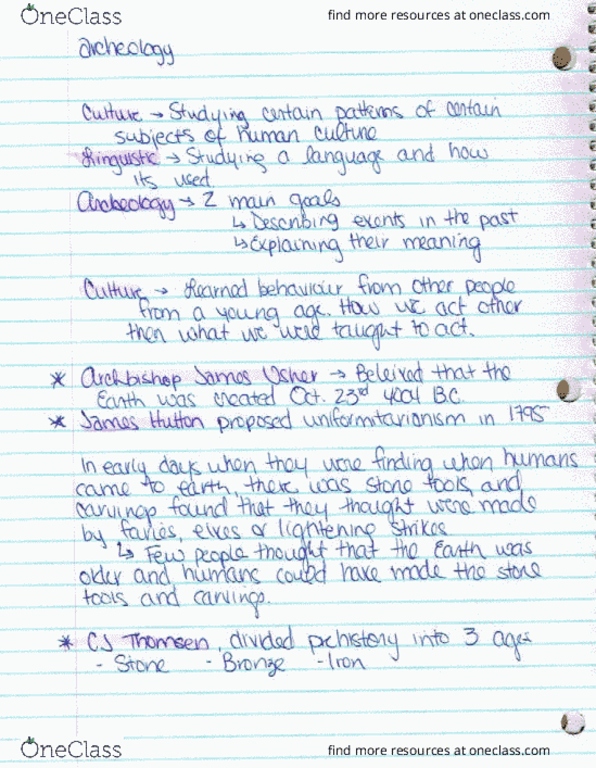 OneClass
find more resources at oneclass.com
archeology
Culture → Studying certain patterns of certain
subjects of human culture
Linguistic → Studying a language and how
its used
Archeology → 2 main goals
↳ Describing events in the past
↳ Explaining their meaning
Culture → learned behaviour from other people
from a young age. How we act other
then what we were taught to act.
* Archbishop James Usher → Beleived that the
Earth was created Oct. 23rd 4004 BC.
* James Hutton proposed uniformitarionism in 1795
In early days when they were finding when humans
came to earth, there was stone tools, and
carvings found that they thought were made
by faries, elves or lightening strikes
↳ Few people thought that the Earth was
older and humans could have made the stone
tools and carvings.
* CJ Thomsen, divided prehistory into 3 ages
- Stone - Bronze - Iron
OneClass
find more resources at oneclass.com